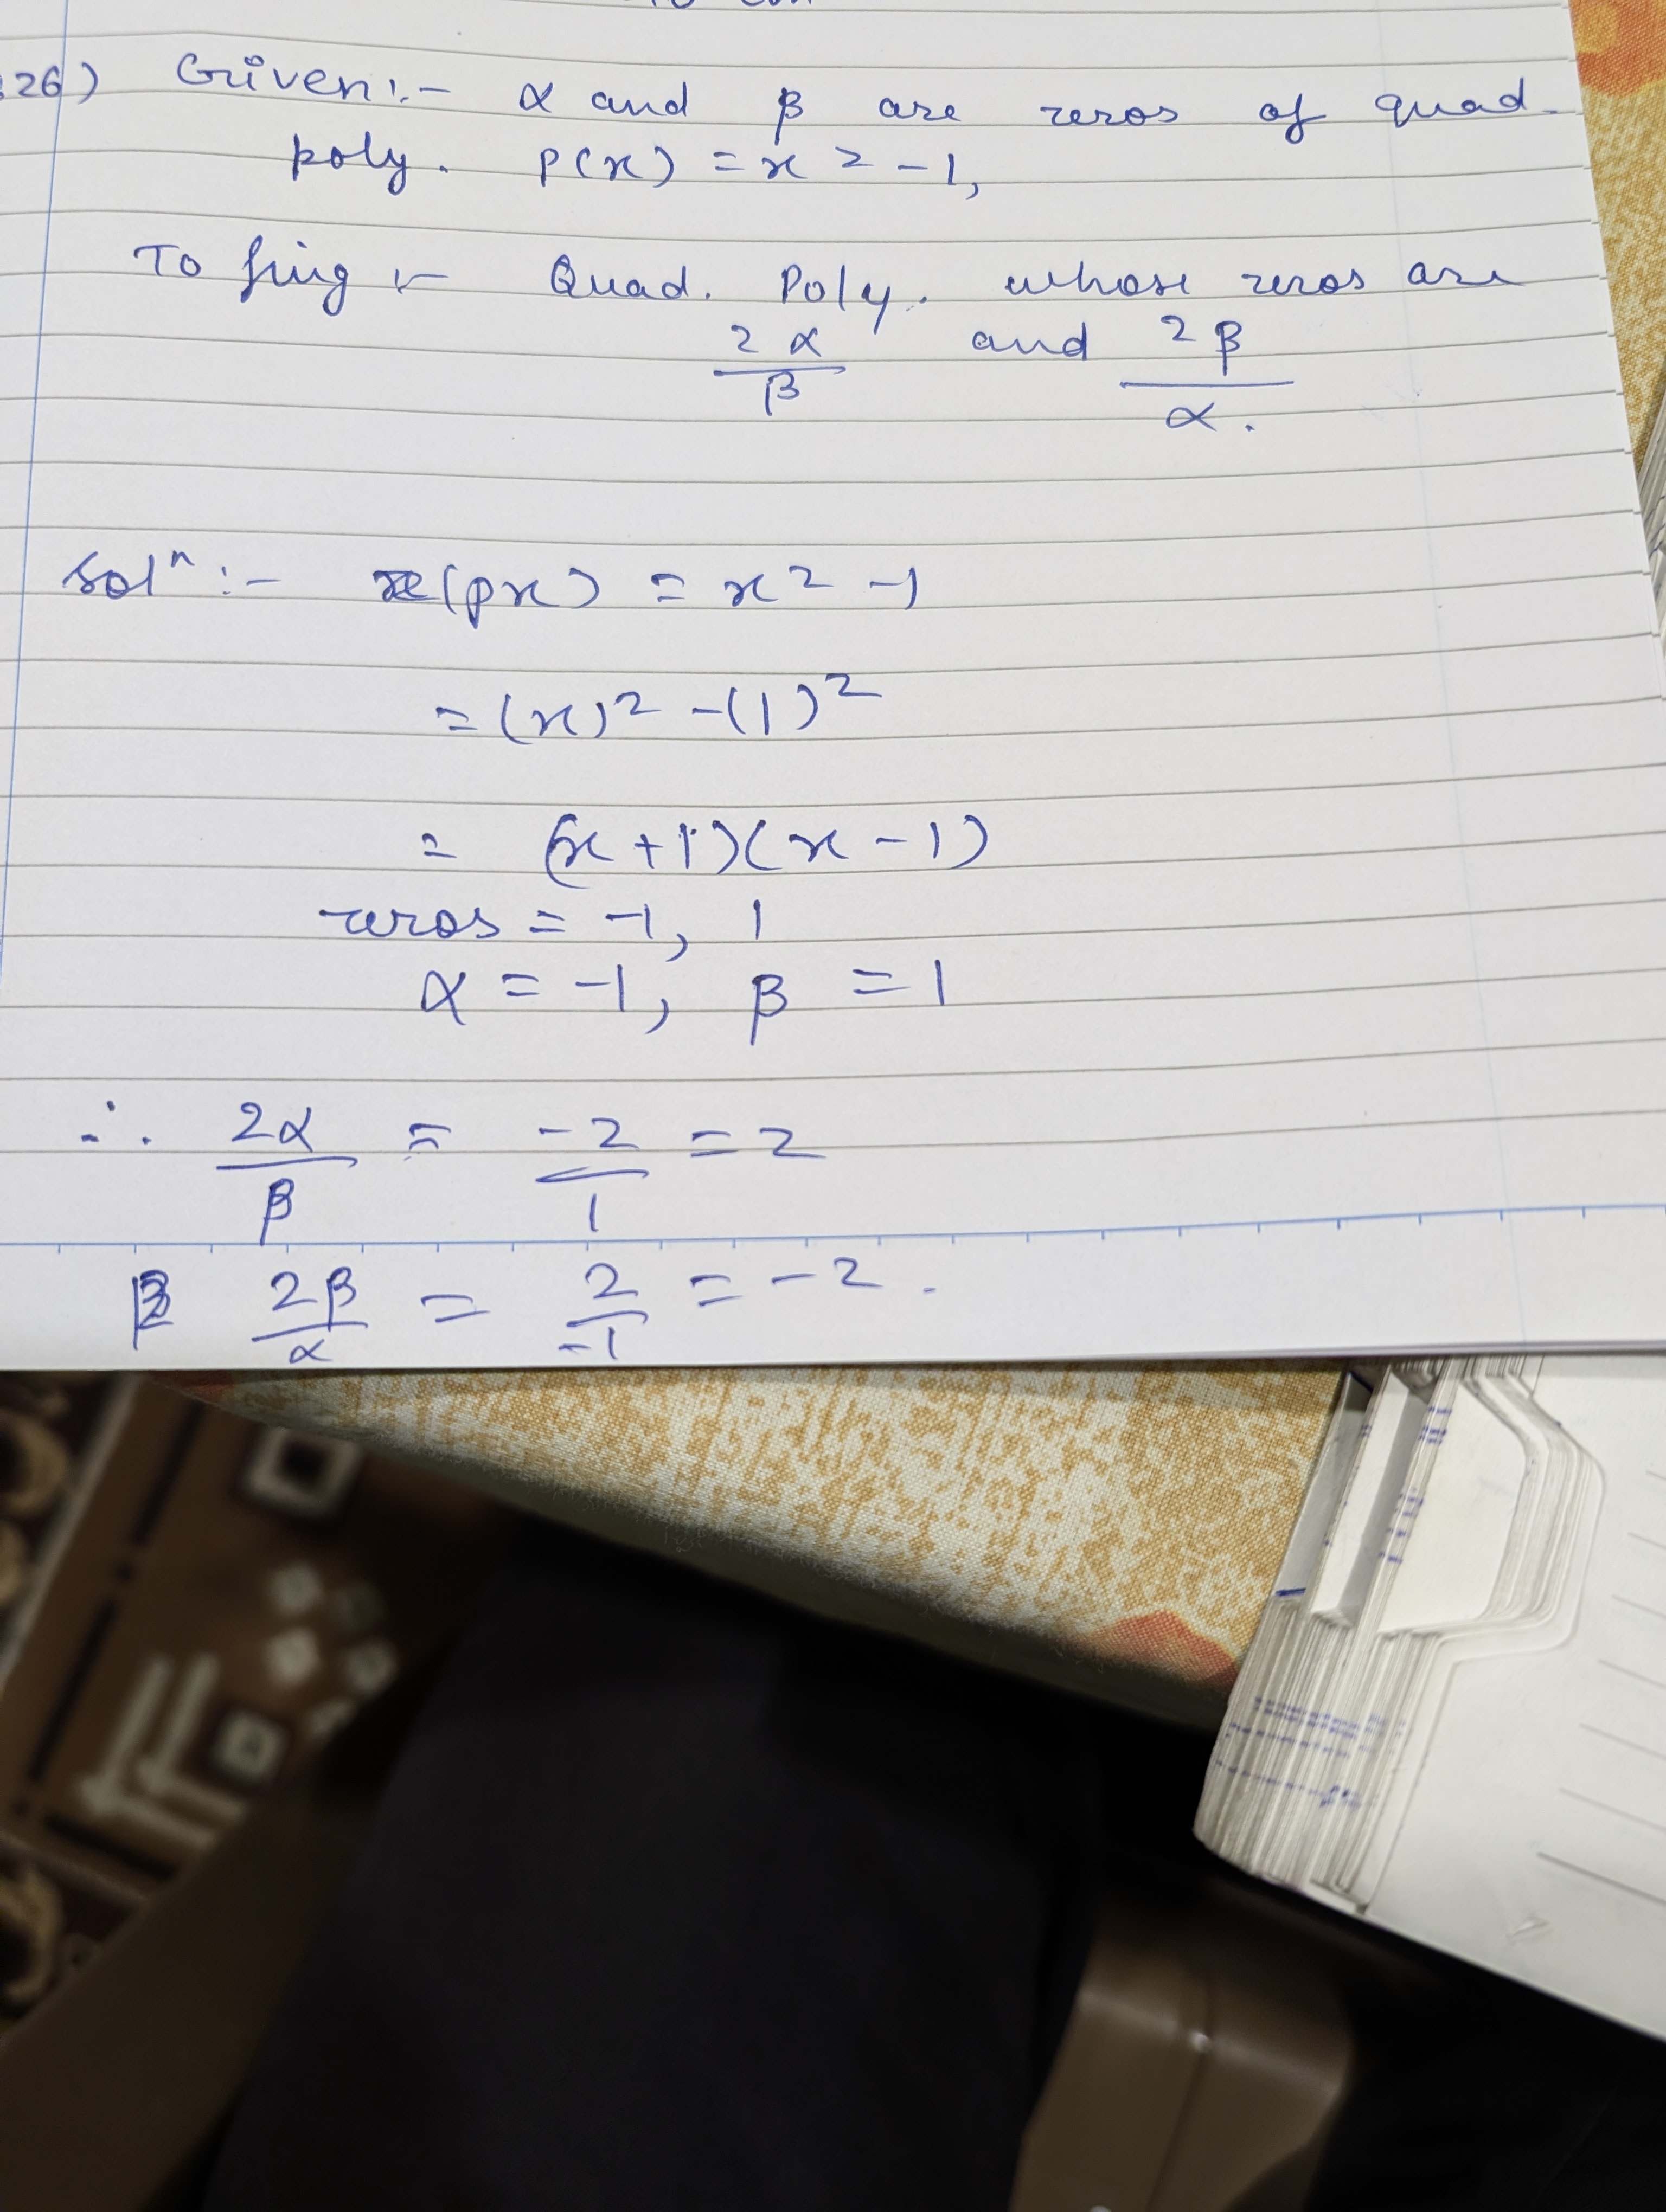 26) Given:- α and β are zeros of quad
poly. P(x) = x2 - 1,
To fing :- Quad. Poly. whose zeros are
2α/β and 2β/α.
Solⁿ :- (px) = x2 - 1
= (x)2 - (1)2
= (x+1)(x-1)
zeros = -1, 1
α = -1, β = 1
∴ 2α/β = -2/1 = 2
2β/α = 2/-1 = -2.